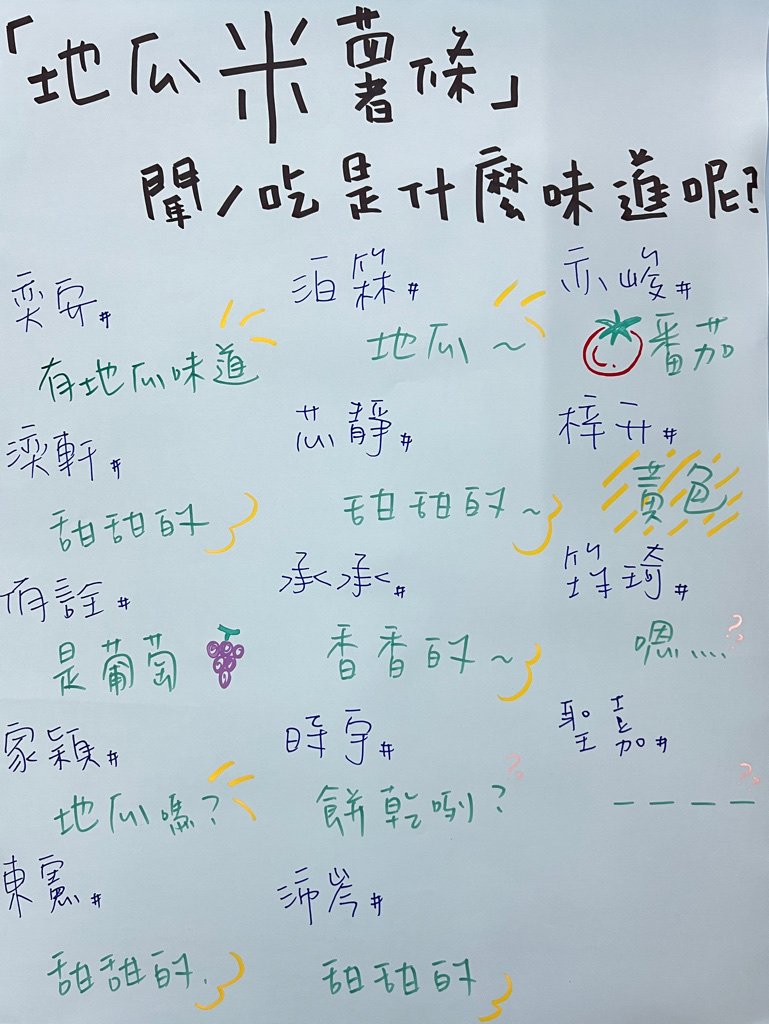 「地瓜米薯條」
聞/吃是什麼味道呢?
奕安# 洦箖# 亦峻#
有地瓜味道 地瓜～ 番茄
渶軒# 芯靜# 梓#
甜甜的 甜甜的～ 黃色
侑詮# 承承# 琦#
是葡萄 香香的～ 嗯....?
家穎# 時宇# 聖嘉#
地瓜嗎? 餅乾咧?? ————?
東憲# 沛岑#
甜甜的. 甜甜的